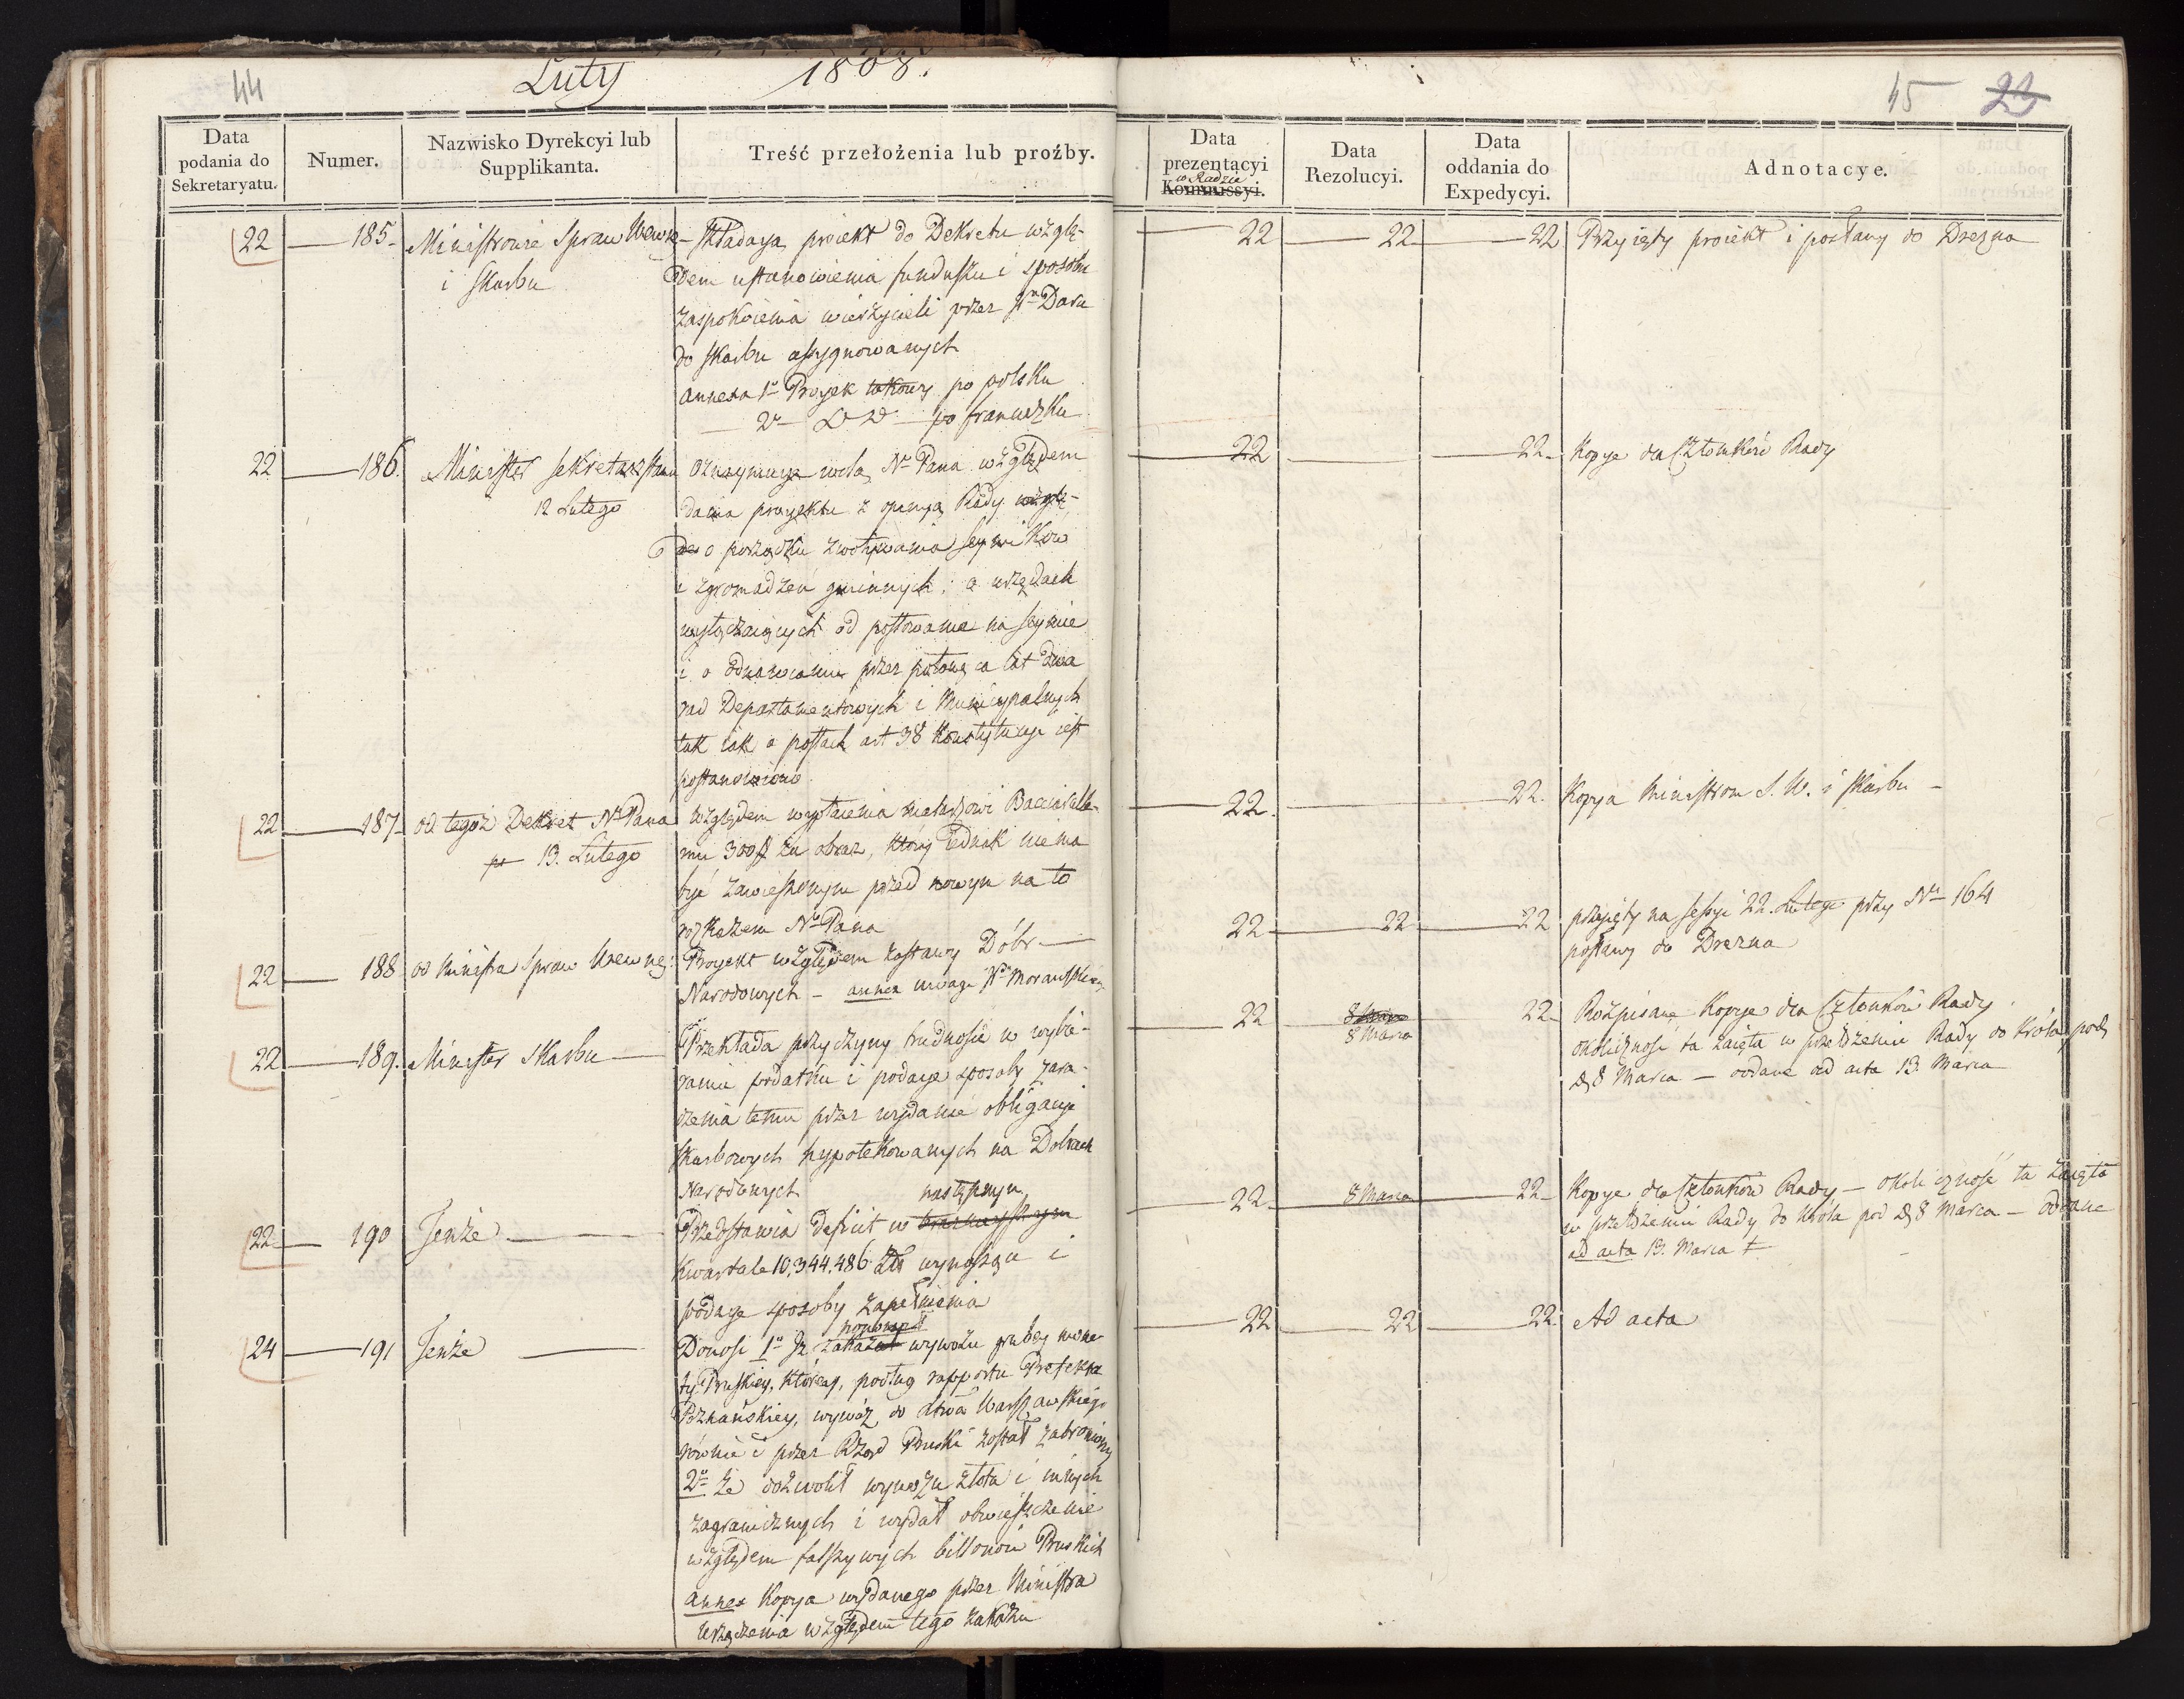 44
Luty 1808.
Data podania do Sekretaryatu.
Numer.
Nazwisko Dyrekcyi lub Supplikanta.
Treść przełożenia lub proźby.
22 185 Ministrowie Spraw Wewnę. i Skarbu
Składaią proiekt do Dekretu wzglę-
dem ustanowienia funduszu i sposobu
zaspokoienia wierzycieli przez Pna Daru
do skarbu assygnowanych
annexa 1o Proyek takowy po polsku
2o po francuzku
22 186. Minister Sekretarz Stanu
12 Lutego
oznaymuye wolą Nо Pana względem
dania proyektu z opinyą Rady wzglę-
dem o porządku zwoływania seymików
i zgromadzeń gminnych; o urzędach
wyłączaiących od posłowania na seymie
i o odnawianiu przez połowę co lat dwa
rad Departamentowych i Municypalnych
tak iak o posłach art 38 Konstytucyi iest
postanowiono
22 187 od tegoż Dekret No Pana
13. Lutego
względem wypłacenia malarzowi Bacciarelle-
mu 300# za obraz, który iednak nie ma
być zawieszonym przed nowym na to
rozkazem No Pana
22 188 od Ministra Spraw Wewnę:
Proyekt względem zastawy Dóbr
Narodowych – annex uwagi Wo Morawskiego
22 189. Minister Skarbu
Przekłada przyczyny trudności w wybie-
raniu podatku i podaye sposoby zara-
dzenia temu przez wydanie obligacyi
skarbowych hypotekowanych na Dobrach
Narodowych
22 190 Tenże
następnym
Przedstawia deficit w
kwartale 10,344,486 Zł wynoszący i
podaye sposoby zapełnienia
24 191 Tenże
Donosi 1o Iż zakazał wywozu grubey mone-
ty Pruskiey, którey, podług rapportu Prefekta
Poznańskiey, wywóz do Xtwa Warszawskiego
równie i przez Rząd Pruski został zabroniony
2o że dozwolił wywozu złota i innych
zagranicznych i wydał obwieszczenie
względem fałszywych billonów Pruskich
annex Kopya wydanego przez Ministra
urządzenia względem tego zakazu
45 23
Data prezentacyi Kommissyi.
w Radzie
Data Rezolucyi.
Data oddania do Expedycyi.
Adnotacye.
22 22 22 Przyięty proiekt i posłany do Drezna
22 22 Kopye dla Członków Rady
22. 22. Kopya Ministrom S. W. i Skarbu –
22 22 22 przyięty na sessyi 22. Lutego przy No 164
posłany do Drezna
22 8 Marca 22 Rozpisane Kopye dla Członków Rady.
8 Marca
okoliczność ta zaięta w przełożeniu Rady do Króla pod
D 8 Marca – oddane ad acta 13. Marca
22 8 Marca 22 Kopye dla Członków Rady – okoliczność ta zaięta
w przełożeniu Rady do Króla pod D 8 Marca – oddane
ad acta 13. Marca
22 22 22 Ad acta